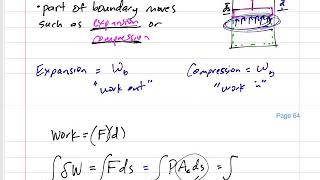 • part of boundary moves
such as expansion or
compression
Expansion = W_b
"work out"
Compression = W_b
"work in"
Page 64
Work = (F)(d)
∫δW = ∫F ds = ∫P A_c ds = ∫